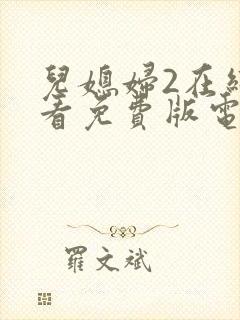 兒媳婦2在線
看免費版電
羅文斌